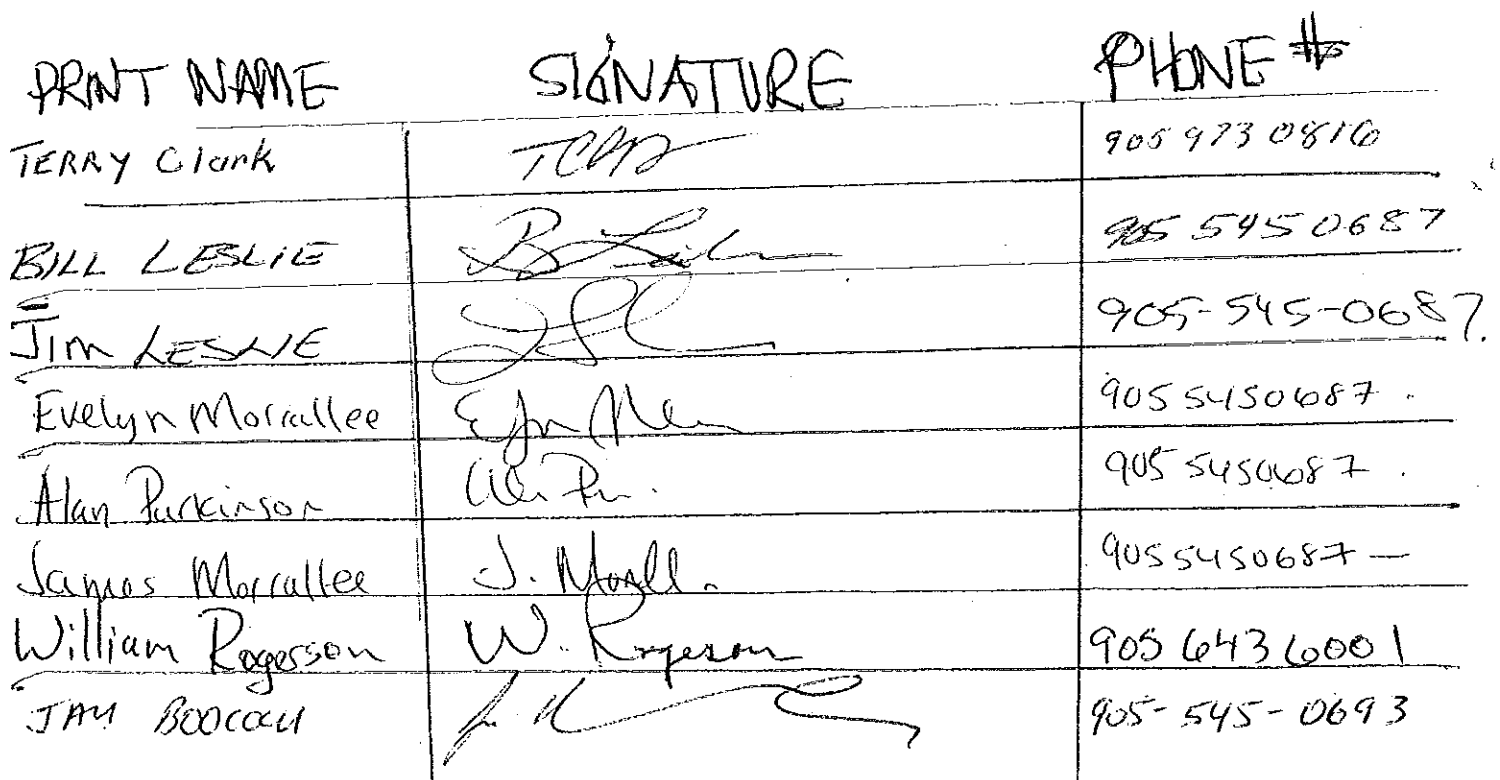 PRINT NAME SIGNATURE PHONE #
TERRY Clark 905 973 0816
BILL LESLIE 905 545 0687
Jim LESLIE 905-545-0687.
Evelyn Morrallee 905 5450687.
Alan Parkinson 905 5450687.
James Morrallee J. Morall. 9055450687 —
William Rogerson W. Rogerson 905 643 6001
905-545-0693